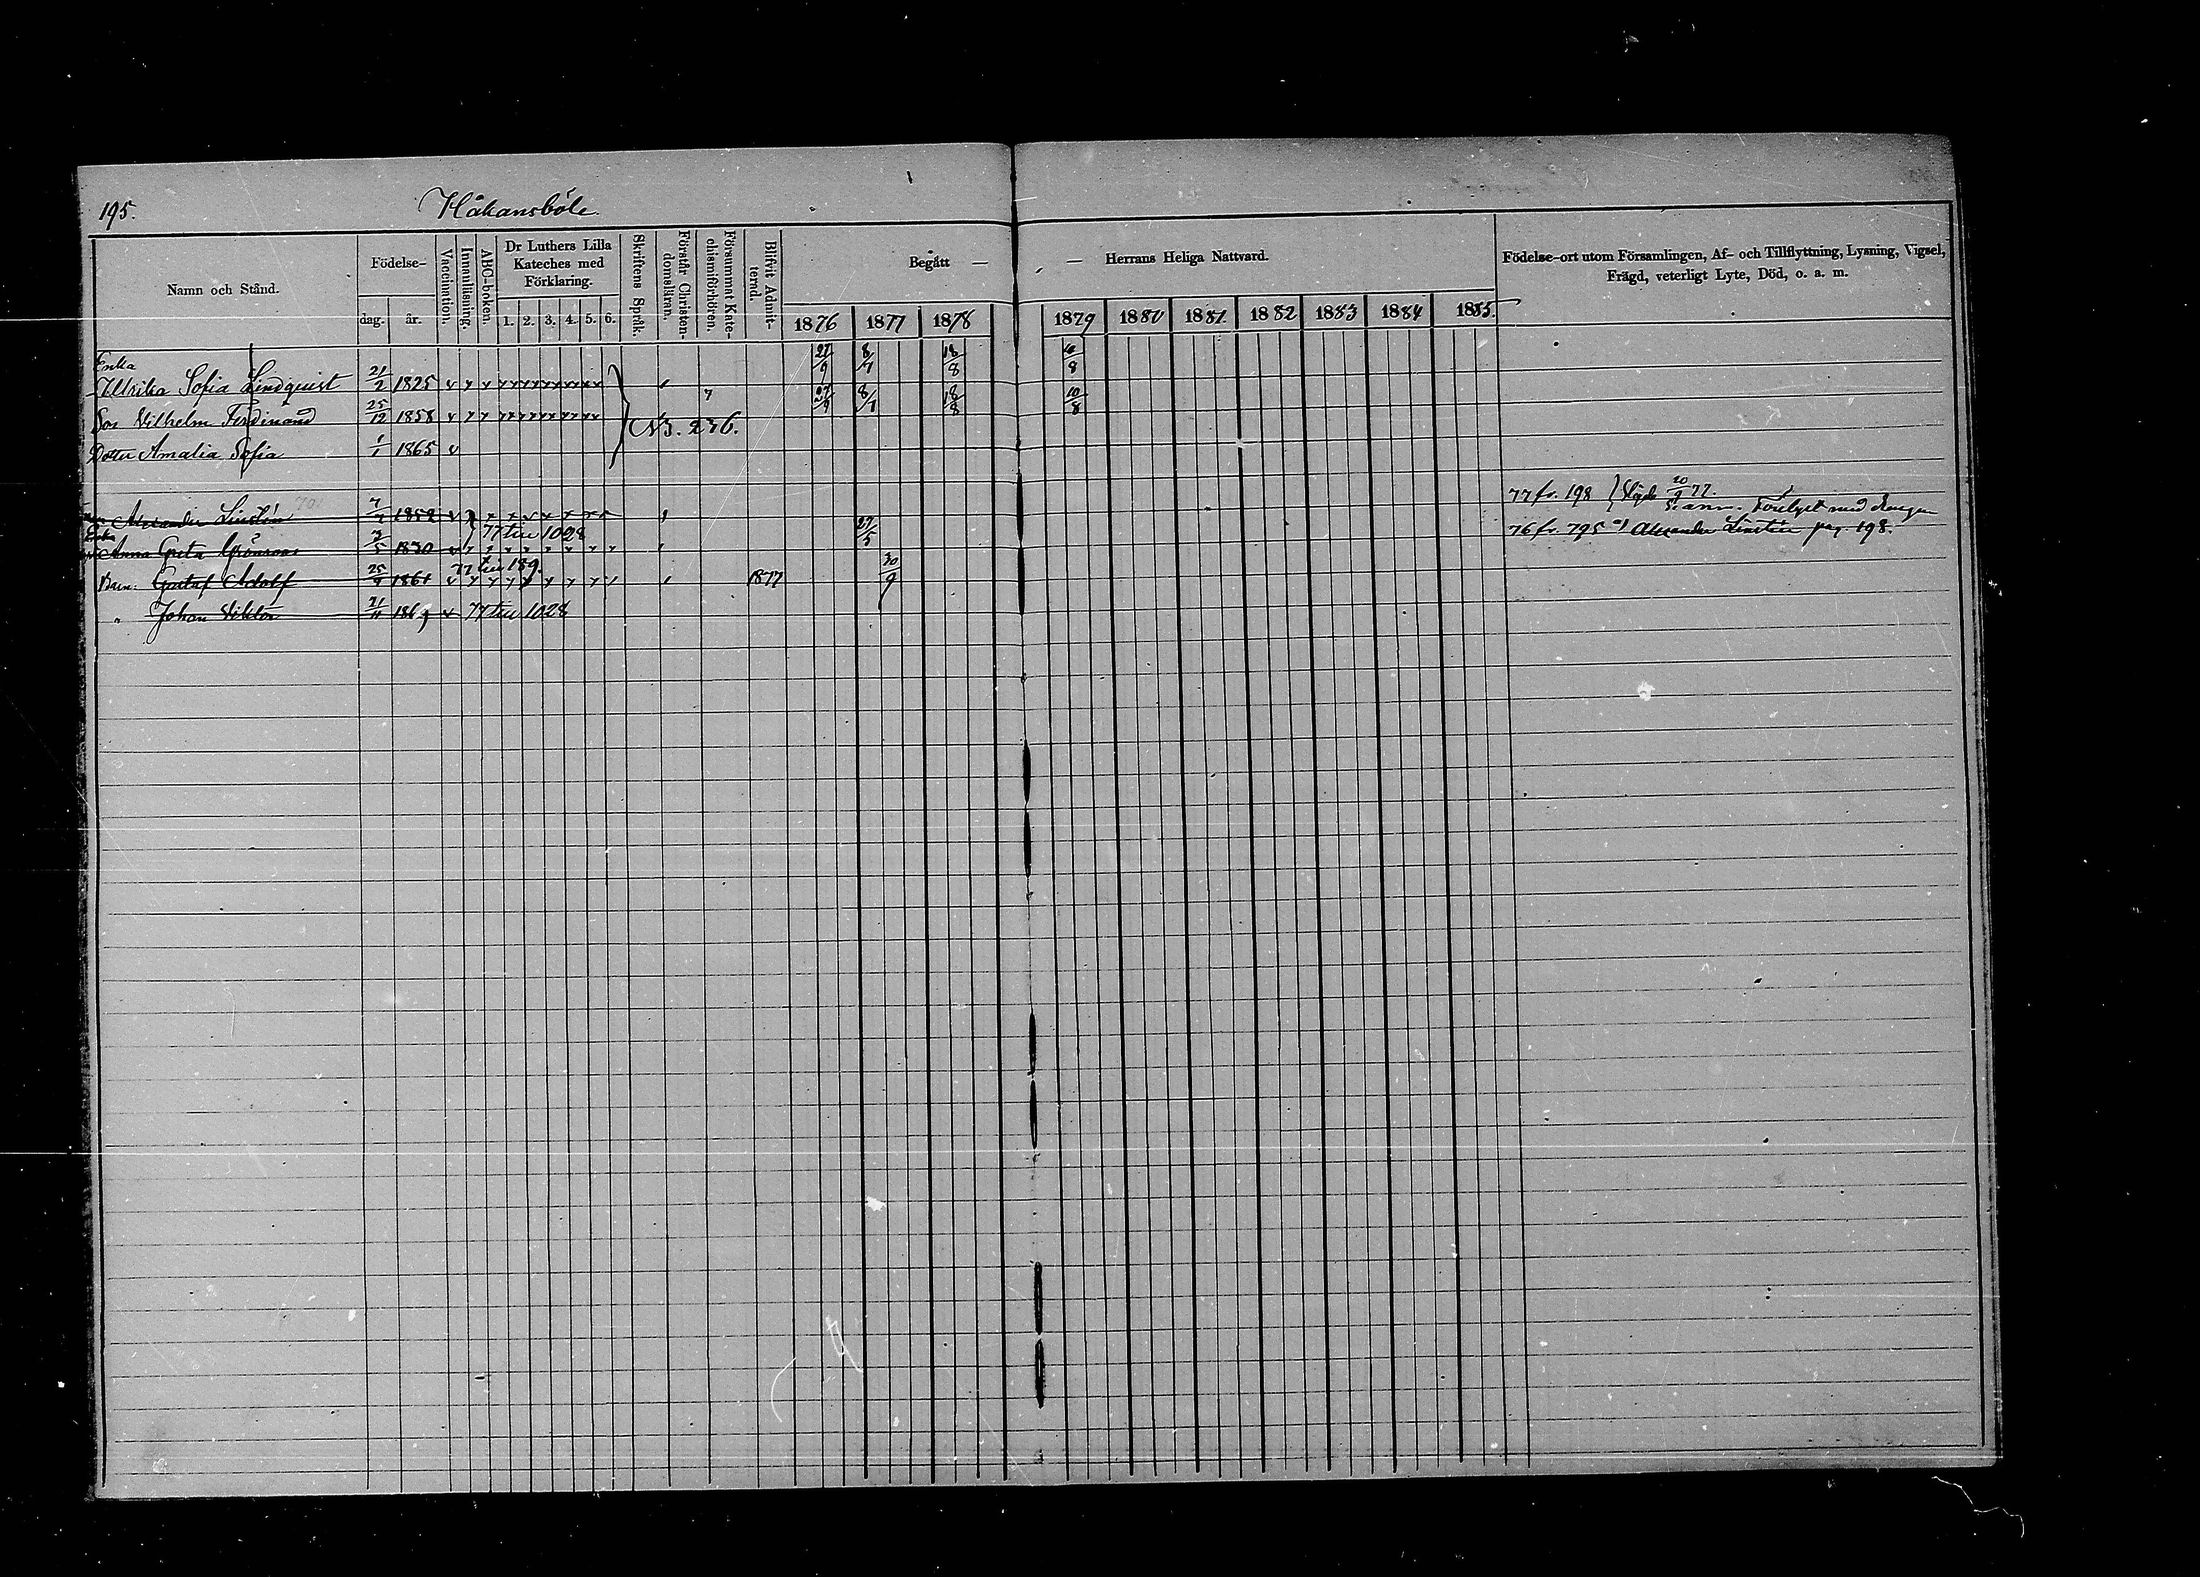 195.
Håkansböle
Namn och Stånd.
Födelse-
dag.
år.
Vaccination.
Innanläsning.
ABC-boken.
Dr Luthers Lilla
Kateches med
Förklaring.
1. 2. 3. 4. 5. 6.
Skriftens Språk.
Förstår Christen-
domsläran.
Försummat Kate-
chismiförhören.
Blifvit Admit-
terad.
Begått —
— Herrans Heliga Nattvard.
1876 1877 1878 1879 1880 1881 1882 1883 1884 1885.
Födelse-ort utom Församlingen, Af- och Tillflyttning, Lysning, Vigsel,
Frägd, veterligt Lyte, Död, o. a. m.
Enka
Ulrika Sofia Lindquist 21/2 1825
27/9 8/7 18/8 10/8
Son Vilhelm Ferdinand 25/12 1858
27/9 8/7 18/8 10/8
N3. 236.
Dotter Amalia Sofia 1/1 1865
Alexander Linstén 1852
77 fr. 198
20/9 77.
Enka
Anna Greta Grönroos 3/5 1830 77 till 1028 27/5
76 fr. 795 Alexander Linstén pag. 198.
Barn: Gustaf Adolf 25/9 1861 77 till 189. 1877 30/9
" Johan Viktor 21/11 1869 77 till 1028